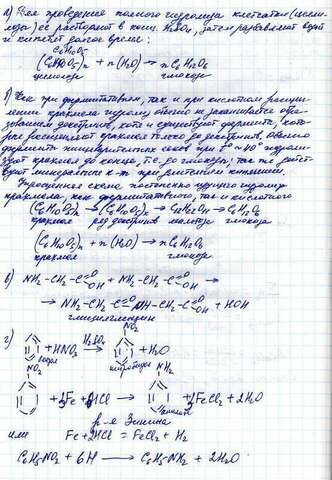 а) Для проведения полного гидролиза клетчатки (целлю-
лозы) её растворяют в конц. H₂SO₄, затем разбавляют водой
и кипятят долгое время:
C₆H₁₀O₅
(C₆H₁₀O₅)n + n(H₂O) → n C₆H₁₂O₆
целлюлоза глюкоза
б) Как при ферментативном, так и при кислотном расщеп-
лении крахмала гидролиз обычно не заканчивается обра-
зованием декстринов, хотя и существуют ферменты, кото-
рые расщепляют крахмал только до декстринов,
ферменты пищеварительных соков при t° ≈ 40° гидроли-
зуют крахмал до конца, т.е. до глюкозы; так же действ
уют минеральные к-ты при длительном кипячении.
Упрощенная схема постепенно идущего гидролиза
крахмала, как ферментативного, так и кислотного
(C₆H₁₀O₅)n → (C₆H₁₀O₅)x → C₁₂H₂₂O₁₁ → C₆H₁₂O₆
крахмал ряд декстринов мальтоза глюкоза
(C₆H₁₀O₅)n + n(H₂O) → n C₆H₁₂O₆
крахмал глюкоза
в) NH₂-CH₂-C=O OH + NH₂-CH₂-C=O OH →
→ NH₂-CH₂-C=O NH-CH₂-C=O OH + HOH
глицилглицин
г) + HNO₃ H₂SO₄ → NO₂ + H₂O
NO₂ NH₂
+ 3Fe + 6HCl → + 3FeCl₂ + 2H₂O
р-я Зинина
или Fe + 2HCl = FeCl₂ + H₂
C₆H₅NO₂ + 6H → C₆H₅NH₂ + 2H₂O